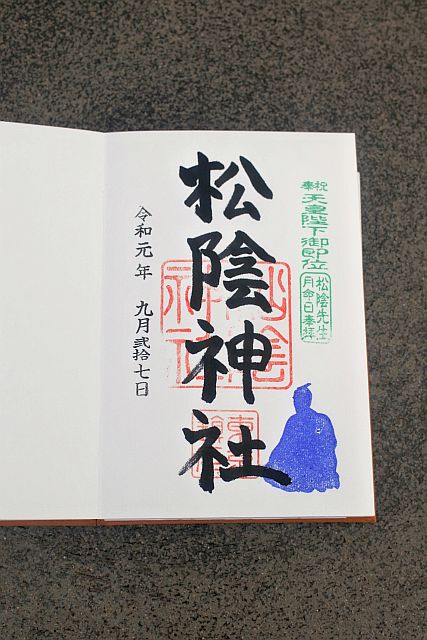 奉祝
天皇陛下御即位
松陰先生
月命日奉拝
松陰神社
松陰
神社
令和元年 九月弐拾七日